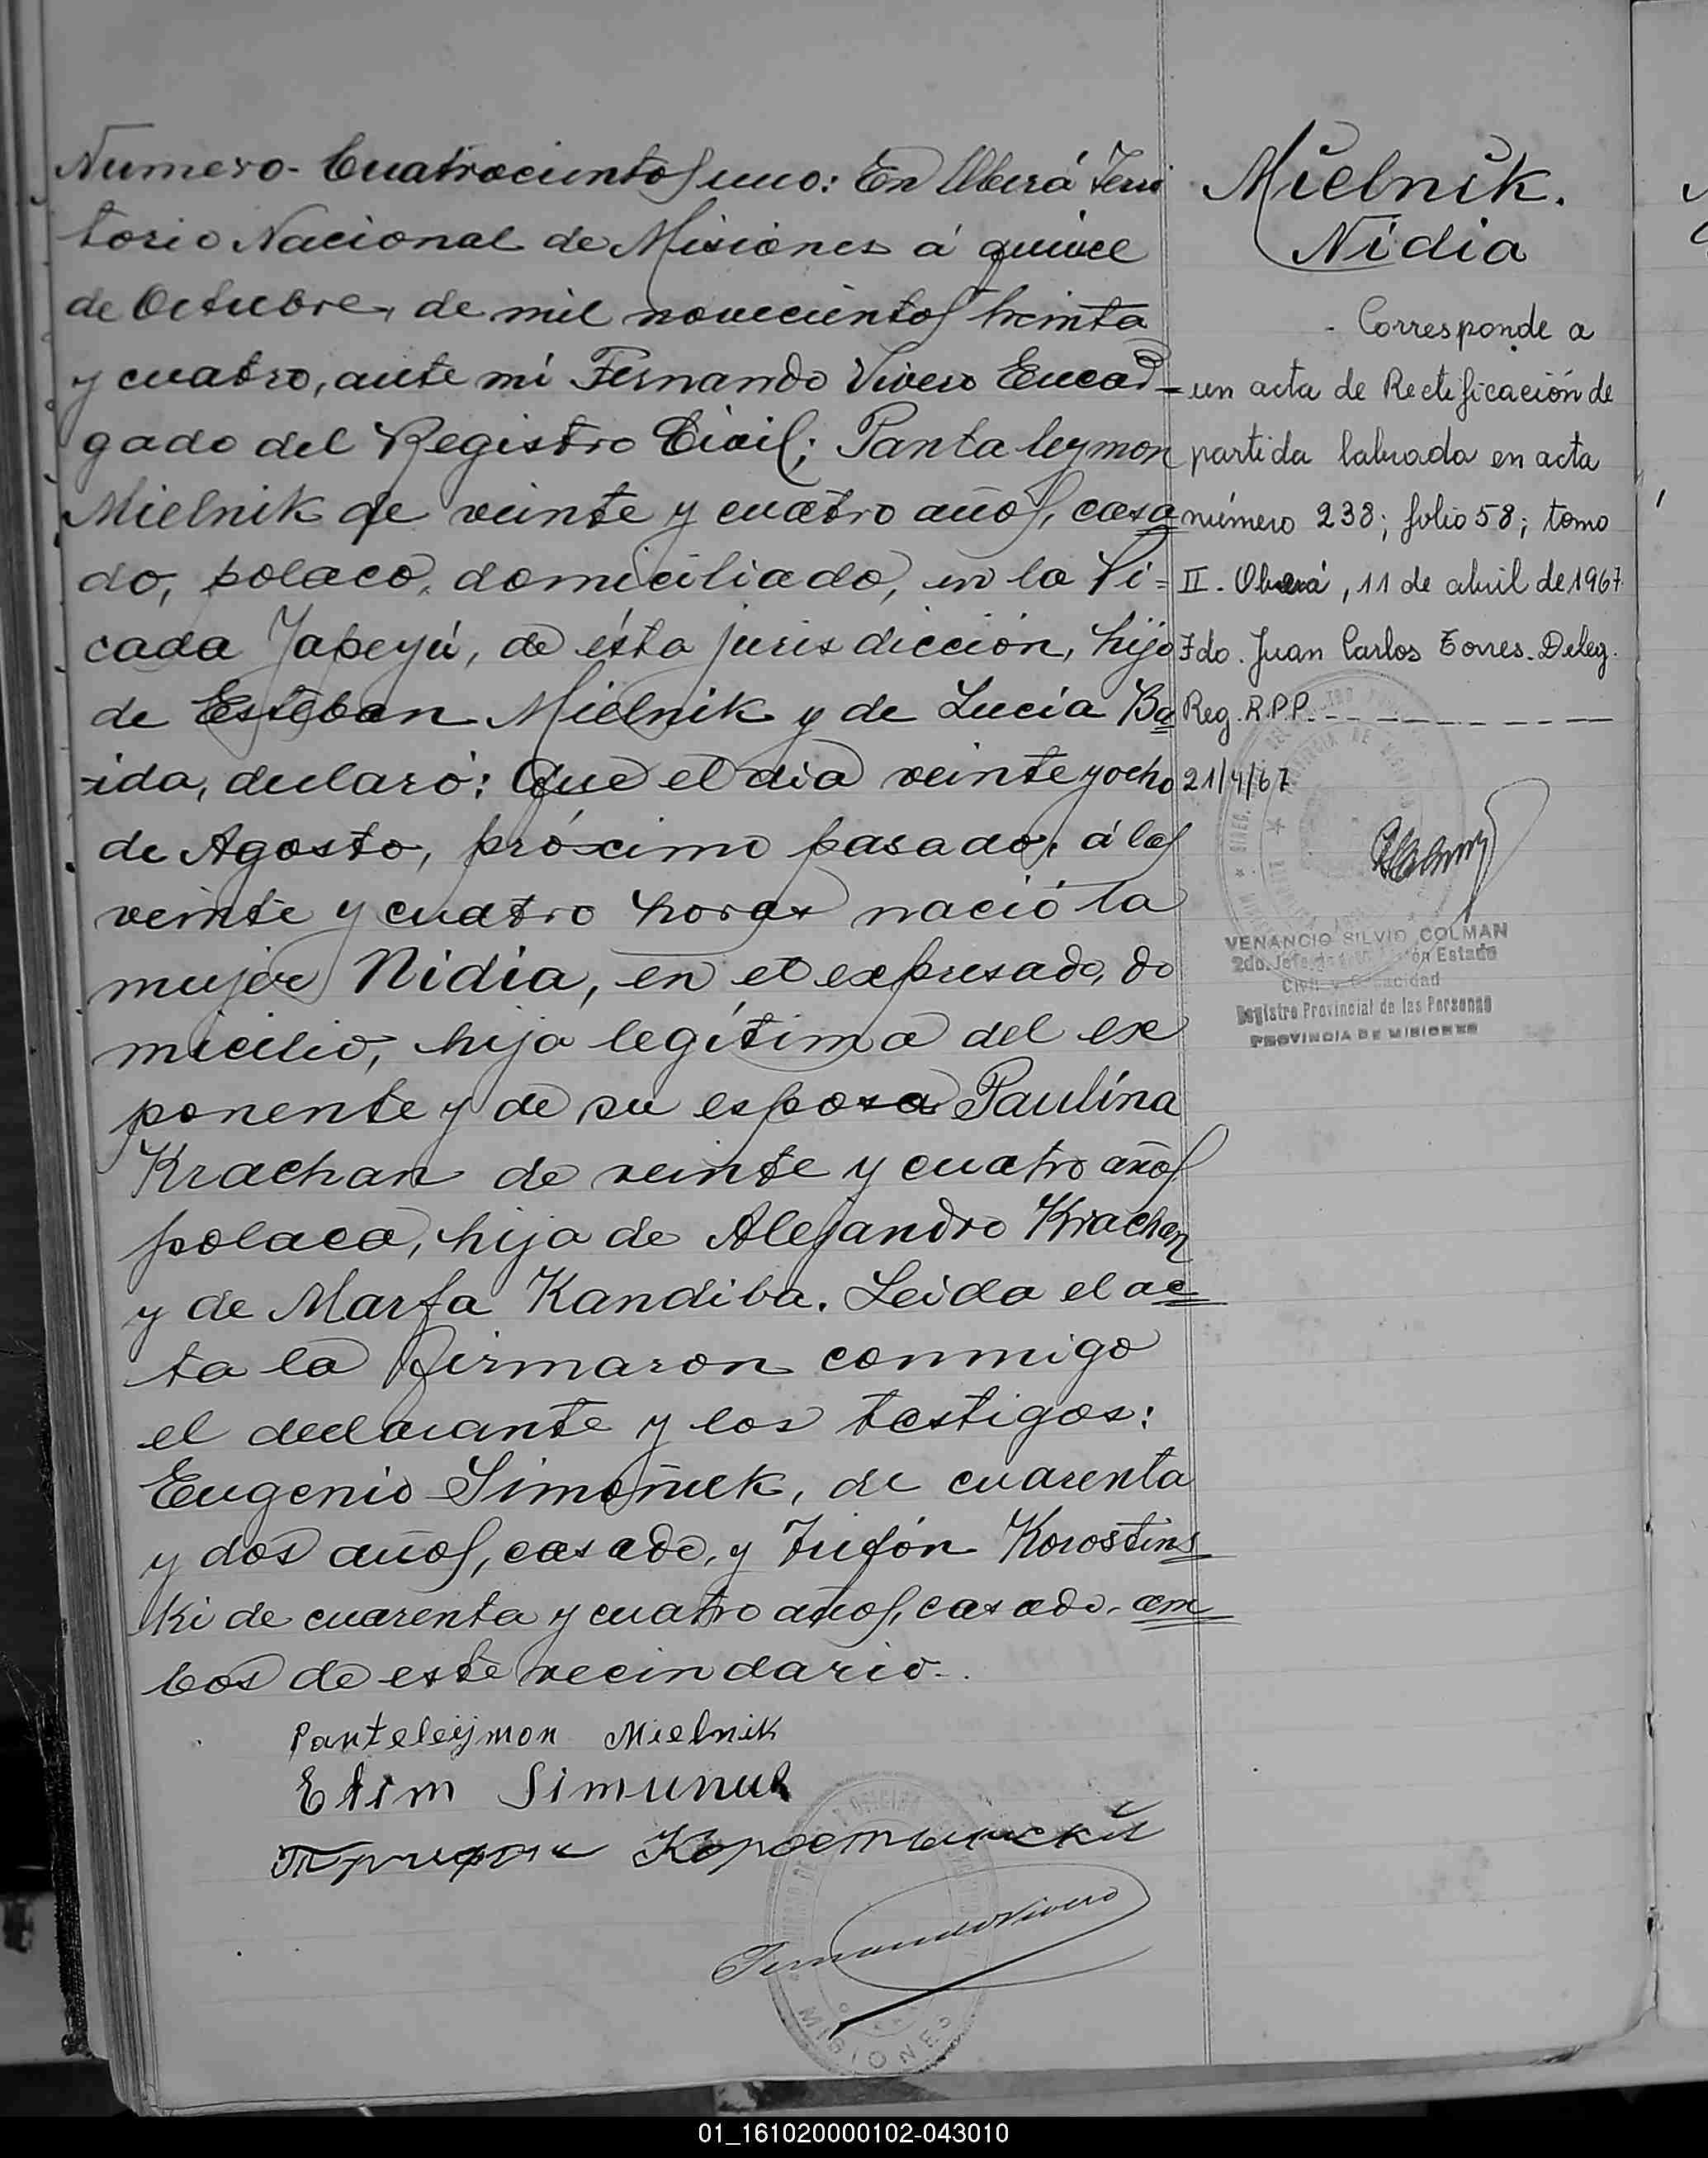 Numero-Cuatrocientos uno: En Oberá Terri
torio Nacional de Misiones á quince
de Octubre, de mil novecientos treinta
y cuatro, ante mi Fernando Vivero Encar-
gado del Registro Civil; Pantaleymon
Mielnik de veinte y cuatro años, casa
do, polaco, domiciliado, en la Pi=
cada Yapeyú, de ésta jurisdicción, hijo
de Esteban Mielnik y de Lucía Ba
ida, declaró: Que el dia veinte y ocho
de Agosto, próximo pasado, á las
veinte y cuatro horas nació la
mujer Nidia, en el expresado, do
micilio, hija legítima del ex
ponente y de su esposa Paulina
Krachan de veinte y cuatro años
polaca, hija de Alejandro Krachan
y de Marfa Kandiba. Leida el ac
ta la firmaron conmigo
el declarante y los testigos:
Eugenio Simoñuk, de cuarenta
y dos años, casado, y Trifón Korostins
ki de cuarenta y cuatro años, casado, am
bos de este vecindario.
Panteleijmon Mielnik
Simunuk
Трифон Коростынский
Fernando Vivero
MISIONES
Mielnik.
Nidia
- Corresponde a
un acta de Rectificación de
partida labrada en acta
número 238; folio 58; tomo
II. Oberá, 11 de abril de 1967.
Fdo. Juan Carlos Torres. Deleg.
Reg. R.P.P.
21/4/67
VENANCIO SILVIO COLMAN
2do. Jefe
Registro Provincial de las Personas
PROVINCIA DE MISIONES
01_161020000102-043010